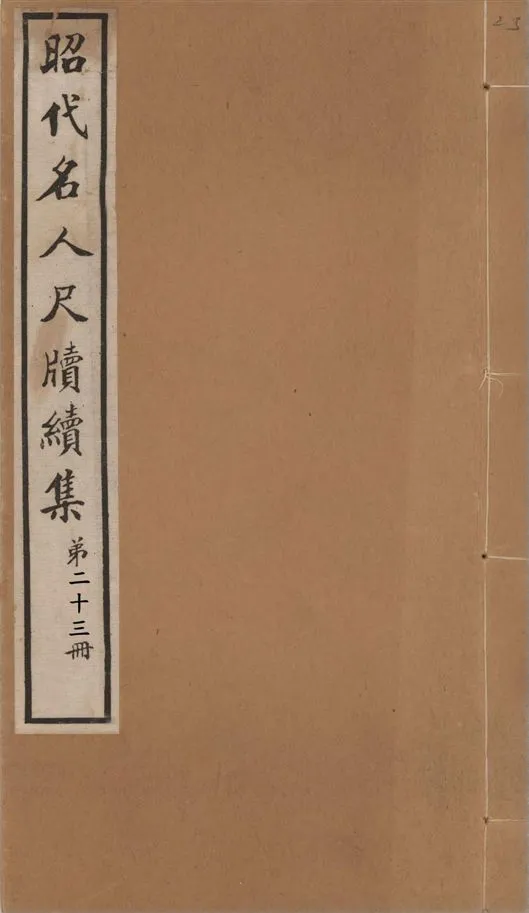 昭代名人尺牘續集
弟二十三冊
23